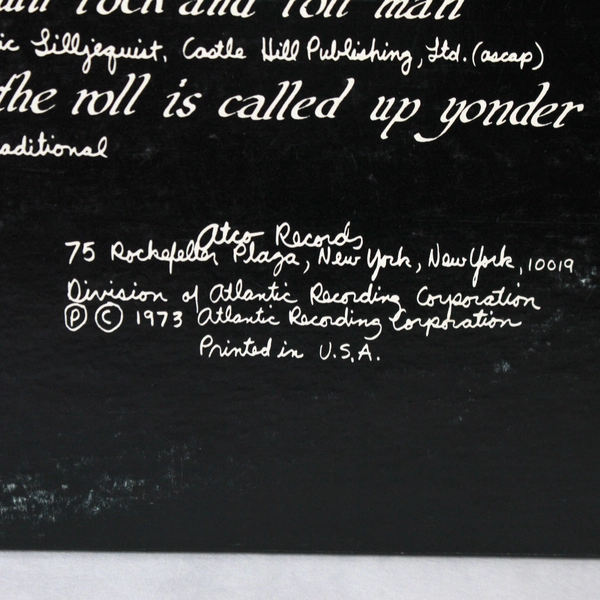 rock and roll man
ic Lilljequist, Castle Hill Publishing, Ltd. (ascap)
the roll is called up yonder
aditional
Atco Records
75 Rockefeller Plaza, New York, New York, 10019
Division of Atlantic Recording Corporation
Ⓟ © 1973 Atlantic Recording Corporation
Printed in U.S.A.